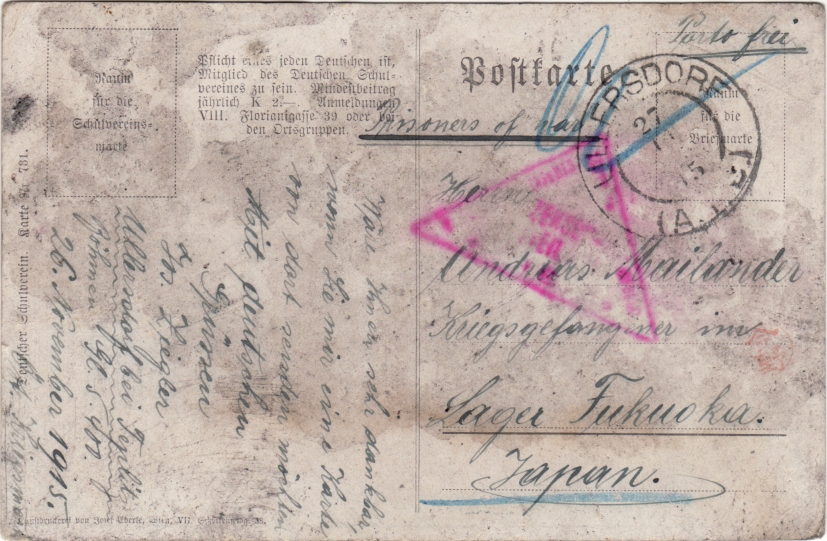 Porto frei
Raum
für die
Schulvereins-
marke
Pflicht eines jeden Deutschen ist,
Mitglied des Deutschen Schul-
vereines zu sein. Mindestbeitrag
jährlich K 2·— Anmeldungen
VIII. Florianigasse 39 oder bei
den Ortsgruppen.
Postkarte
Raum
für die
Briefmarke
ULLERSDORF
27
15
(A.
Prisoners of war
Herrn
Andreas
Kriegsgefangener im
Lager Fukuoka.
Japan.
Wäre Ihnen sehr dankbar
wenn Sie mir eine Karte
von dort senden möchten
Mit deutschen
Grüssen
Jos. Ziegler
Ullersdorf bei Teplitz
Böhmen
26. November 1915.
Deutscher Schulverein. Karte Nr. 731.
Kunstdruckerei von Josef Eberle, Wien, VII. Schottenfeldg. 38.